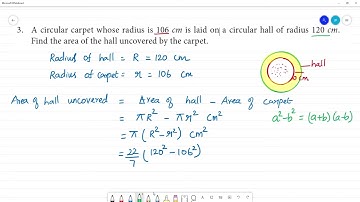 3. A circular carpet whose radius is 106 cm is laid on a circular hall of radius 120 cm.
Find the area of the hall uncovered by the carpet.
Radius of hall = R = 120 cm
Radius of carpet = r = 106 cm
hall
Area of hall uncovered = Area of hall - Area of carpet
= πR² - πr² cm²
a²-b² = (a+b)(a-b)
= π(R²-r²) cm²
= 22/7 (120²-106²)